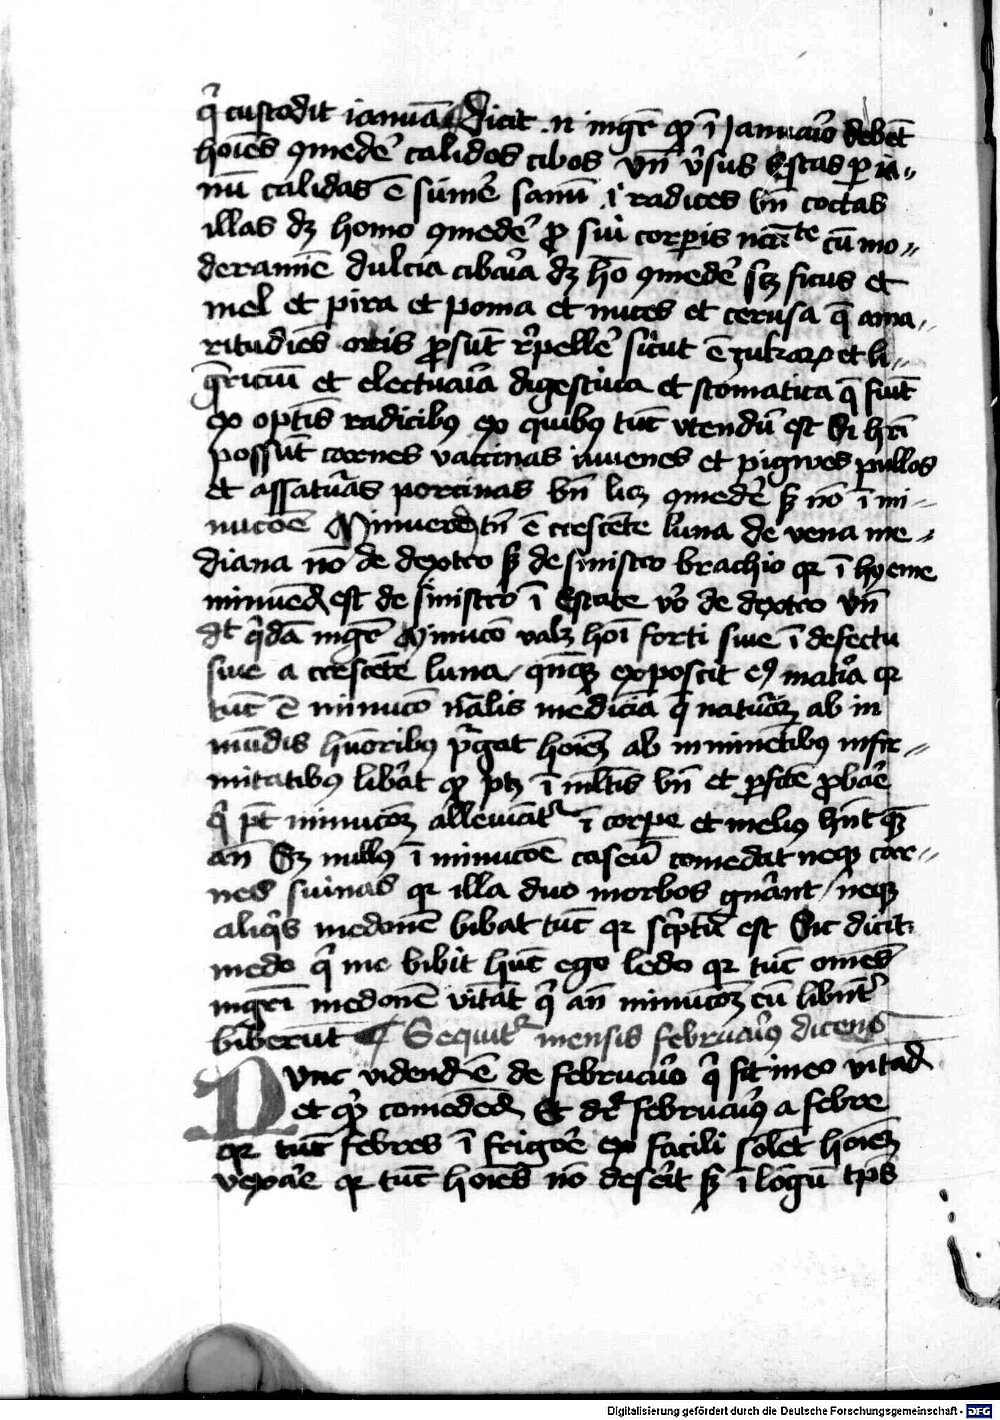 q̄ custodit ianuā Dicit .n. mgr̄ qp ī Januaͥo debēt
hoīes ꝯmedē calidos cibos vn̄ v̓sus Escas per ia⸗
nū calidas ē sūme sanū ⁊ radices bn̄ coctas
illas dꝫ homo ꝯmedē p sui corꝑis ncc̄ite cū mo⸗
deramīe dulcia cibaͥa dꝫ hō ꝯmedē scꝫ ficus et
mel et pira et poma et nuces et cerusa q̄ ama⸗
ritudiēs oris ꝓsūt r̓pellē sicut ē zukarꝫ et li⸗
q̄riciū et electuaͥa digestiua et stomatica q̄ fiūt
ex optīs radicibꝰ ex quibꝰ tūc vtendū est Si hr̄i
possūt carnes vaccinas iuuenes et pigwes pullos
et assatuͣas porcinas bn̄ licꝫ ꝯmedē sꝫ nō ī mi⸗
nucōe Minuend tn̄ ē crescēte luna de vena me⸗
diana nō de dextro sꝫ de sinistro brachio qr ī hyeme
minuēd est de sinistro ī Estate vō de dextro vn̄
dt q̄dā mgr̄ Minucō valꝫ hoī forti siue ī defectu
siue a crescēte luna qn̄cꝫ exposcit eꝰ matͥia qr
tūc ē minucō nr̄alis medicīa q̄ naturā ab in
mūdis hūoribꝰ pͥgat hoīeꝫ ab imminētibꝰ infir⸗
mitatibꝰ libāt qp ptꝫ ī ml̄tis bn̄ et ꝑfc̄e ꝓbāe
q̄ pt minucōꝫ alleuiātᷣ ī corpe et meliꝰ hn̄t qꝫ
an̄ Sꝫ nullꝰ ī minucōe caseū comedat neqꝫ car⸗
nes suinas qr illa duo morbos gn̄ant neqꝫ
aliqͥs medonē bibat tūc qr scͥptū est Sic dicit
medo q̄ me bibit hūc ego ledo qr tūc om̄es
mgr̄i medonē vitāt q̄ an̄ minucōꝫ eū libn̄tᷣ
biberūt ¶ Sequitᷣ mensis februaͥꝰ dicens
Nvnc vidend ē de februaͥo q̄ sit īneo vitād
et qͥ comeded Et dr̄ februaͥꝰ a febre
qr tūc febres ī frigoē ex facili solēt hoīeꝫ
vexāe qr tūc hoīes nō desēit sꝫ ī lōgū tp̄s
Digitalisierung gefördert durch die Deutsche Forschungsgemeinschaft - DFG